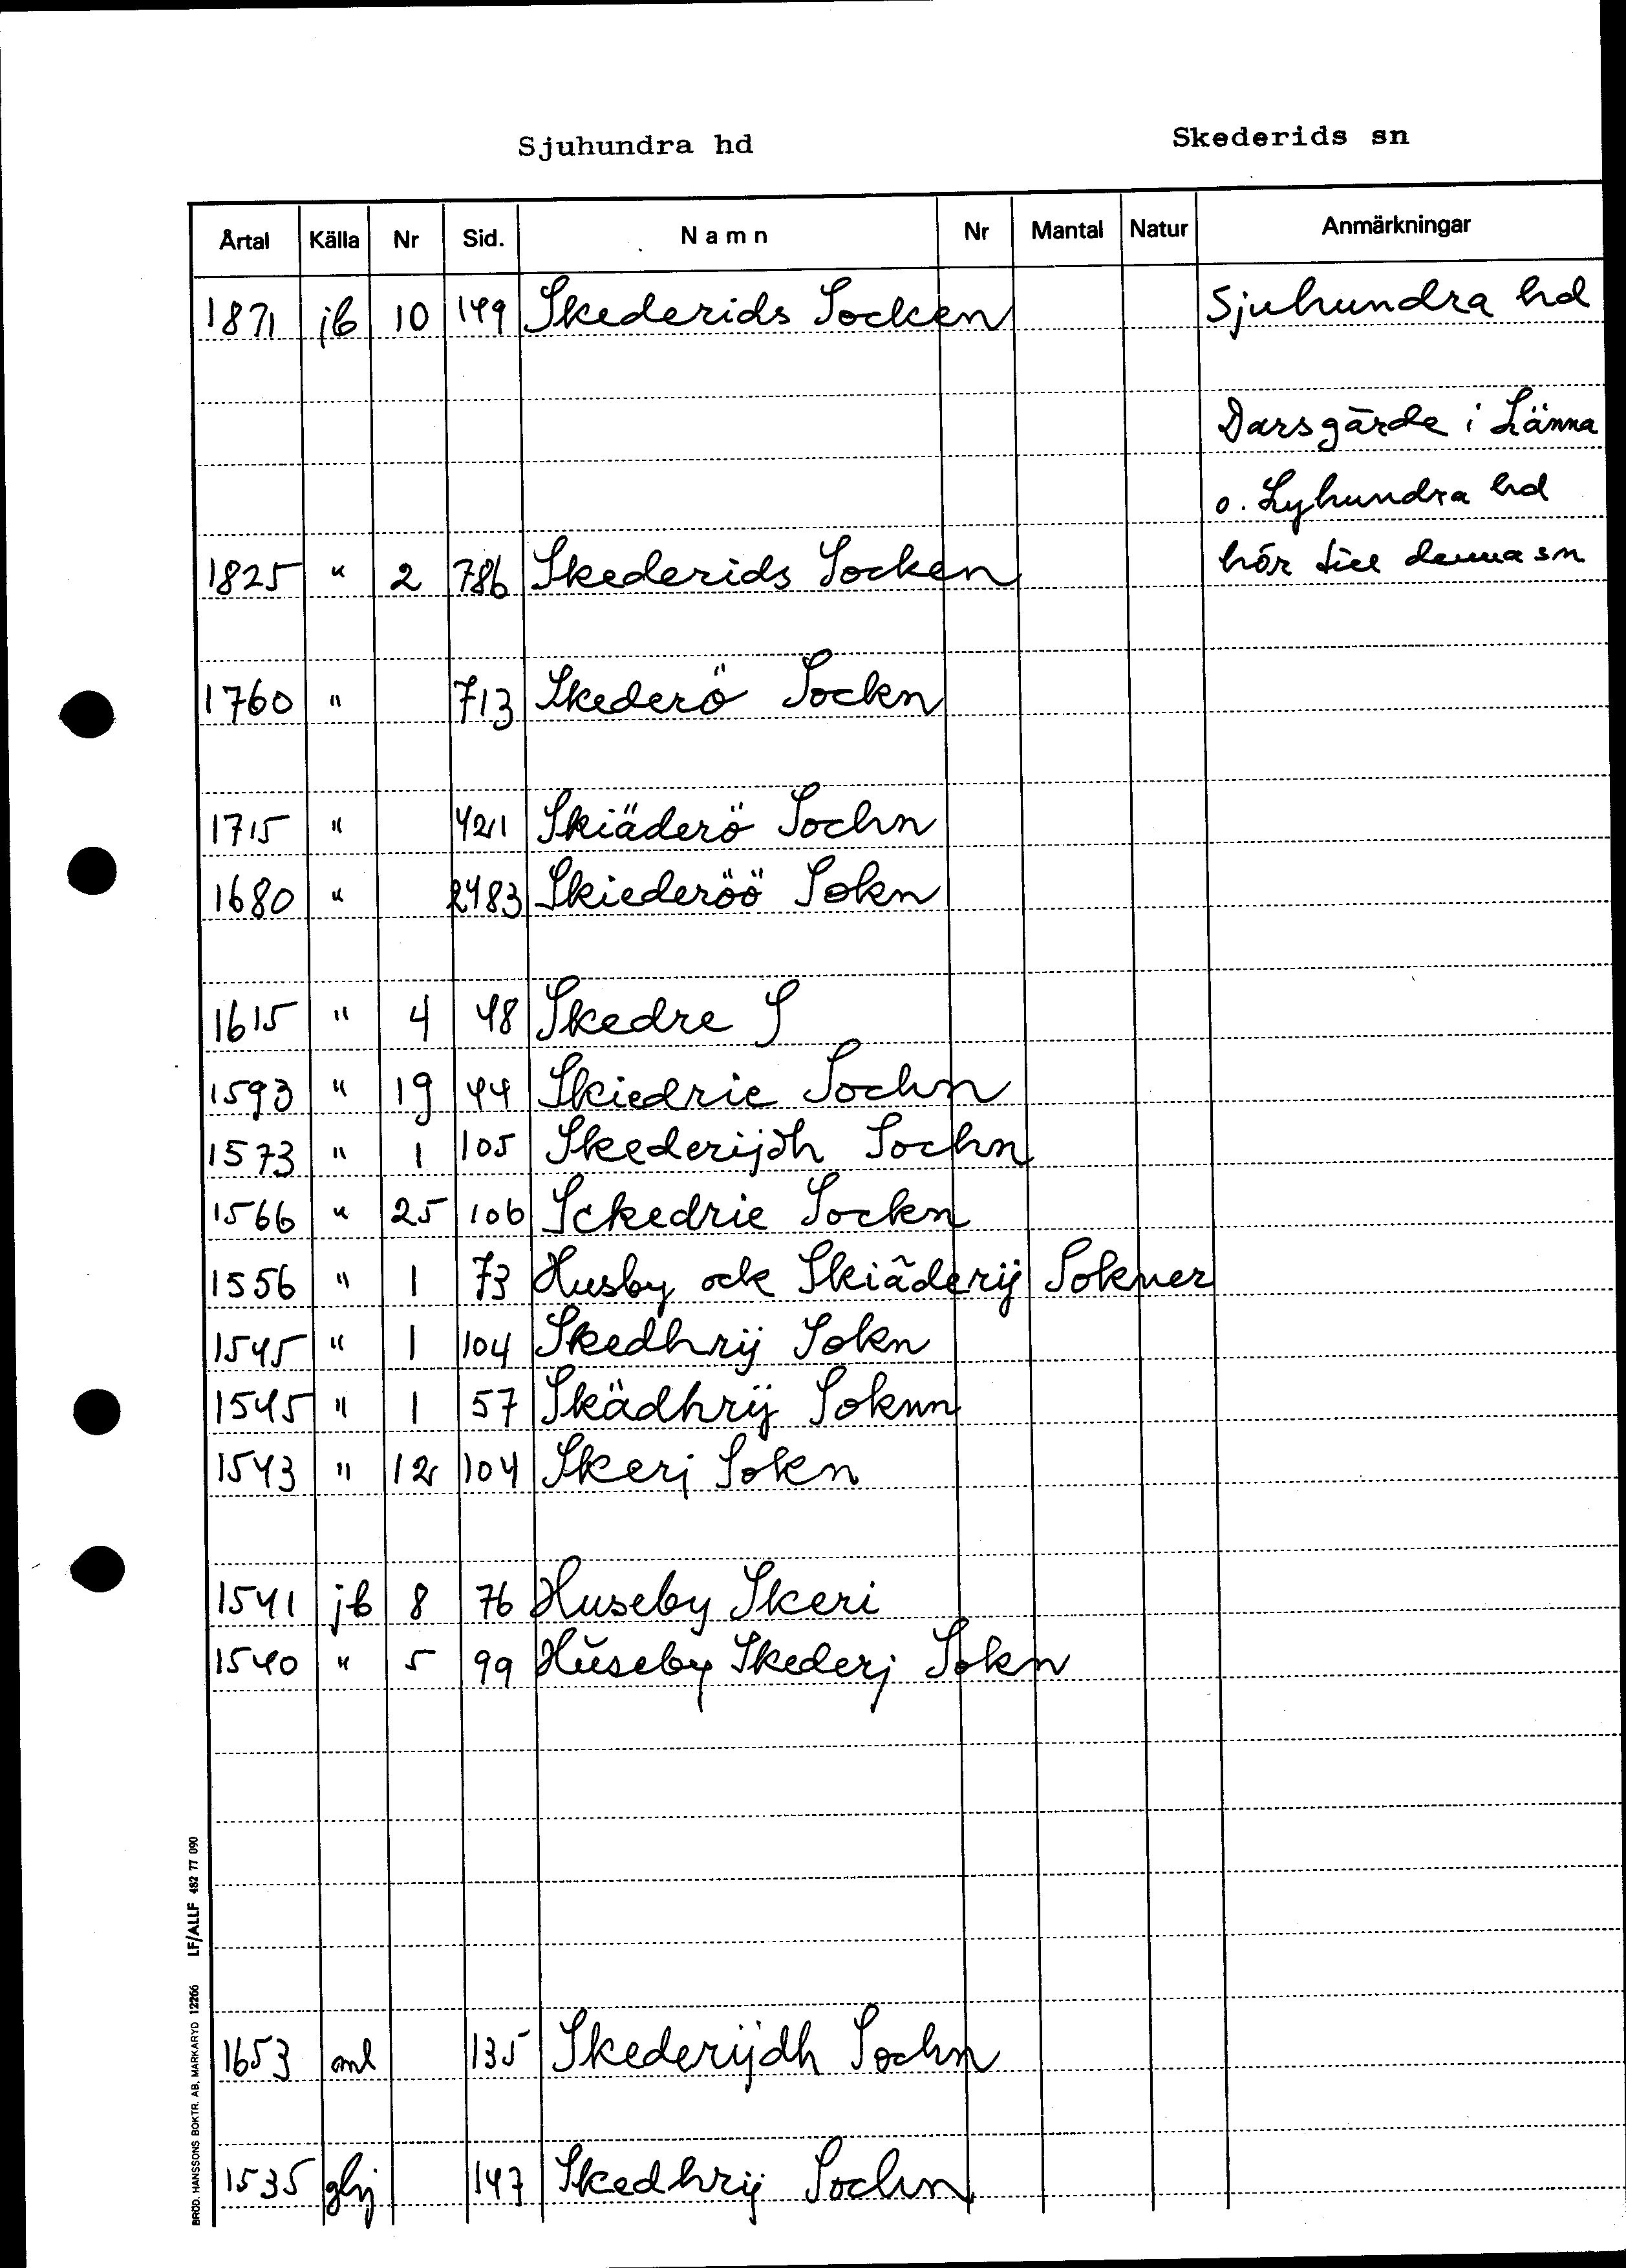 Sjuhundra hd Skederids sn
Årtal Källa Nr Sid. Namn Nr Mantal Natur Anmärkningar
1871 jb 10 149 Skederids Socken Sjuhundra hd
Darsgärde i Länna
o. Lyhundra hd
1825 " 2 786 Skederids Socken hör till denna sn
1760 " 713 Skederö Sockn
1715 " 421 Skiäderö Sochn
1680 " 2483 Skiederöö Sokn
1615 " 4 48 Skedre S
1593 " 19 44 Skiedrie Sochn
1573 " 1 105 Skederijdh Sochn
1566 " 25 106 Sckedrie Sockn
1556 " 1 73 Husby ock Skiäderij Sokner
1545 " 1 104 Skedhrij Sokn
1545 " 1 57 Skädhrij Soknn
1543 " 12 104 Skerj Sokn
1541 jb 8 76 Huseby Skeri
1540 " 5 99 Hŭseby Skederj Sokn
1653 oml 135 Skederijdh Sochn
1535 ghj 147 Skedhrij Sochn
BRÖD. HANSSONS BOKTR. AB, MARKARYD 12266 LF/ALLF 482 77 090